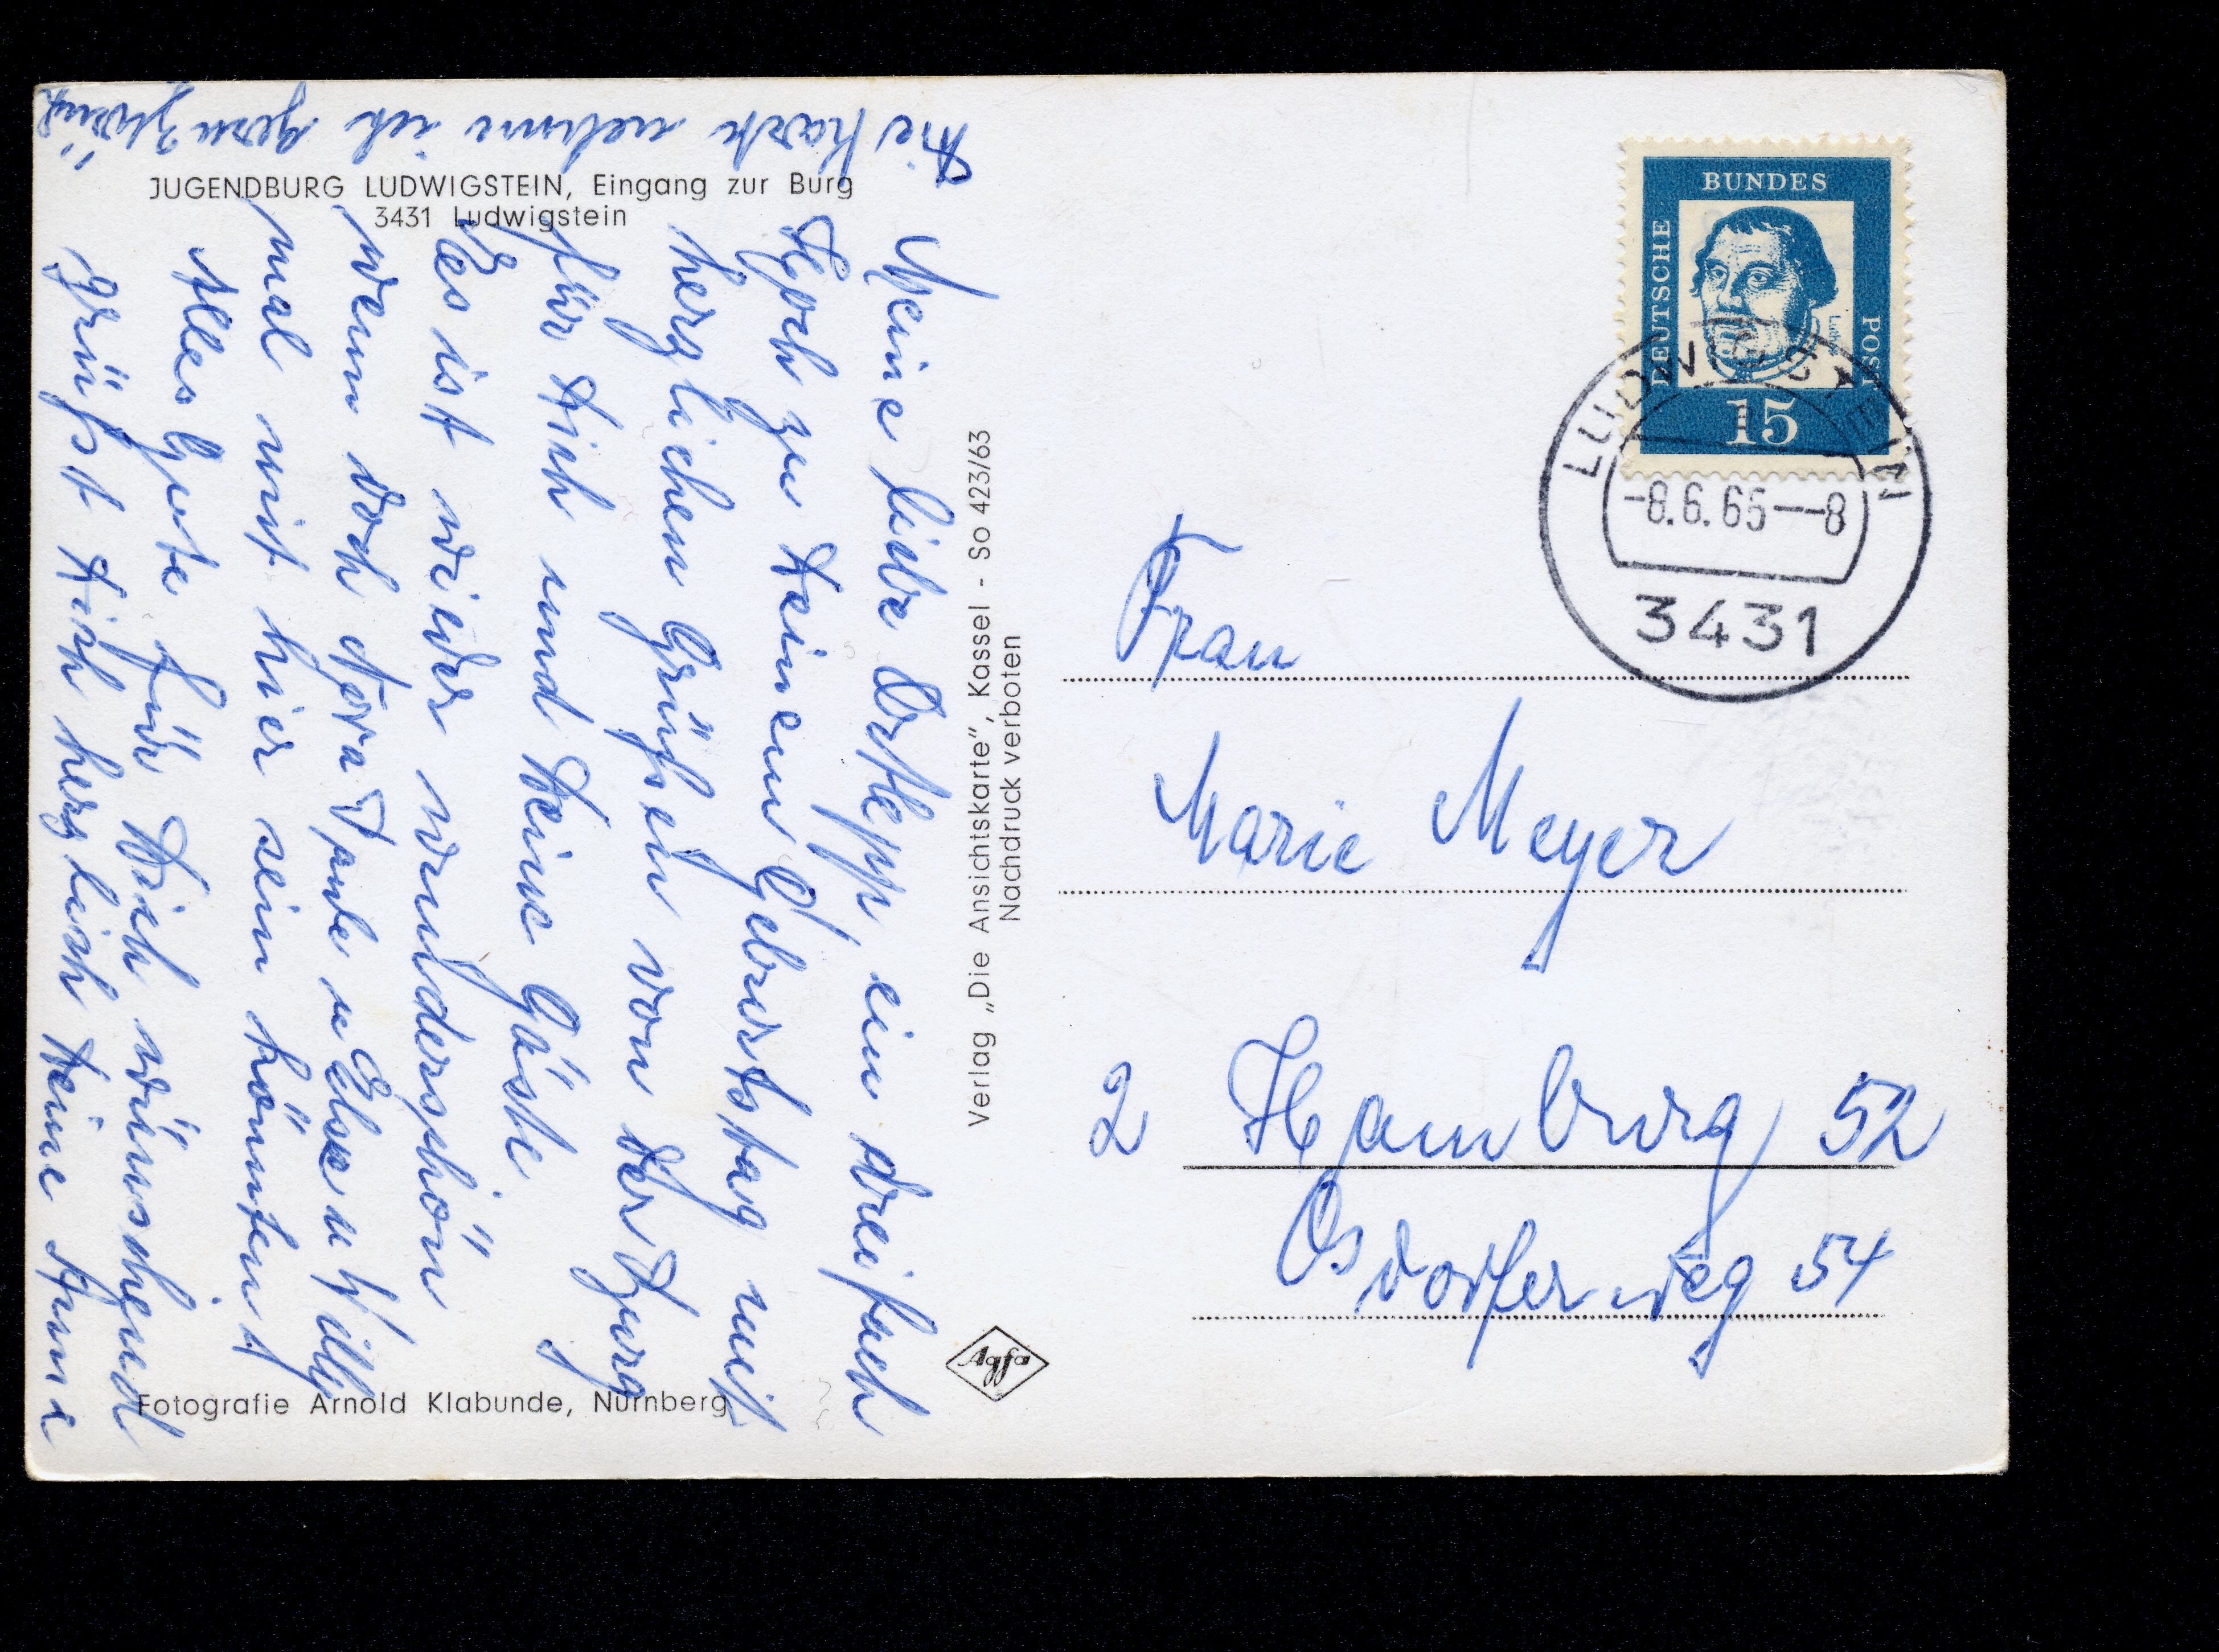 JUGENDBURG LUDWIGSTEIN, Eingang zur Burg
3431 Ludwigstein
Meine liebe Ortlepp, ein dreifach
Hoch zu Deinem Geburtstag mit
herzlichen Grüßen von der Burg
für Dich und Deine Gäste
Es ist wieder wunderschön
wenn doch Nora Tante u Else u Willy
mal mit hier sein könnten!
Alles Gute für Dich wünschend
grüßt Dich herzlich Deine Anne
Die Karte nehme ich gern zurück
Fotografie Arnold Klabunde, Nürnberg
Verlag „Die Ansichtskarte", Kassel - So 423/63
Nachdruck verboten
Agfa
DEUTSCHE
BUNDES
POST
15
LUDWIGSTEIN
-8.6.65--8
3431
Frau
Marie Meyer
2 Hamburg 52
Osdorferweg 54